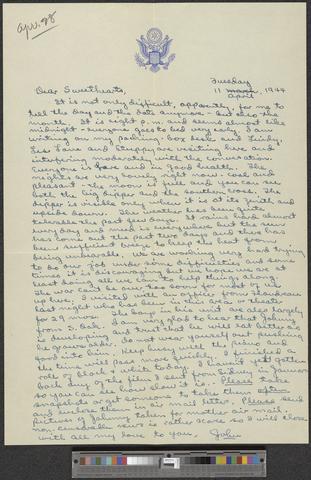 Apr. 28
Tuesday
11 March, 1944
April
Dear Sweethearts,
It is not only difficult, apparently, for me to
tell the day and the date anymore - but also the
month. It is eight p.m. and seems almost like
midnight - everyone goes to bed very early. I am
writing on my packing-box desk and Lindy,
Les Lane and are visiting here and
interfering moderately with the conversation.
Everyone is fine and in good health. The
nights are very lovely right now. Cool and
pleasant - the moon is full and you can see
both the big dipper and the Southern Cross. The
dipper is visible only when it is at its zenith and
upside down. The weather has been quite
tolerable the past few days. It rains hard almost
every day and mud is everywhere but the sun
has come out the past two days and there has
been a sufficient breeze to keep the heat from
being unbearable. We are working very hard trying
to do our job under some difficulties and some
times it is discouraging but we hope we are at
least doing all we can to help things along.
The war can't be over too soon for most of us
up here. I visited with an officer from
last night who has been in this area or theater
for 29 mos. The boys in his unit are also largely
from S. Dak. I am very glad to hear that Johnny
is developing and trust that he will eat better as
he grows older. Do not wear yourself out pushing
food into him. Keep busy with the piano and
the time will pass more quickly. I finished a
role of black & white today. I haven't yet gotten
back any of the films I sent from Sidney in January
so you can see how slow it is. Please take
snapshots or get someone to take them often
and enclose them in air mail letter. Please send
pictures of Johnny taken for mother air mail.
non-censorable news is rather scarce so I will close
with all my love to you. John